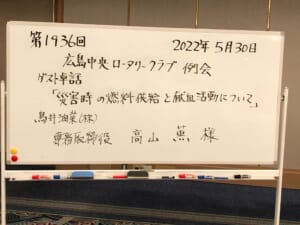 第1936回 2022年5月30日
広島中央ロータリークラブ 例会
ゲスト卓話
「災害時の燃料供給と献血活動について」
鳥井油業(株)
専務取締役 高山 薫 様